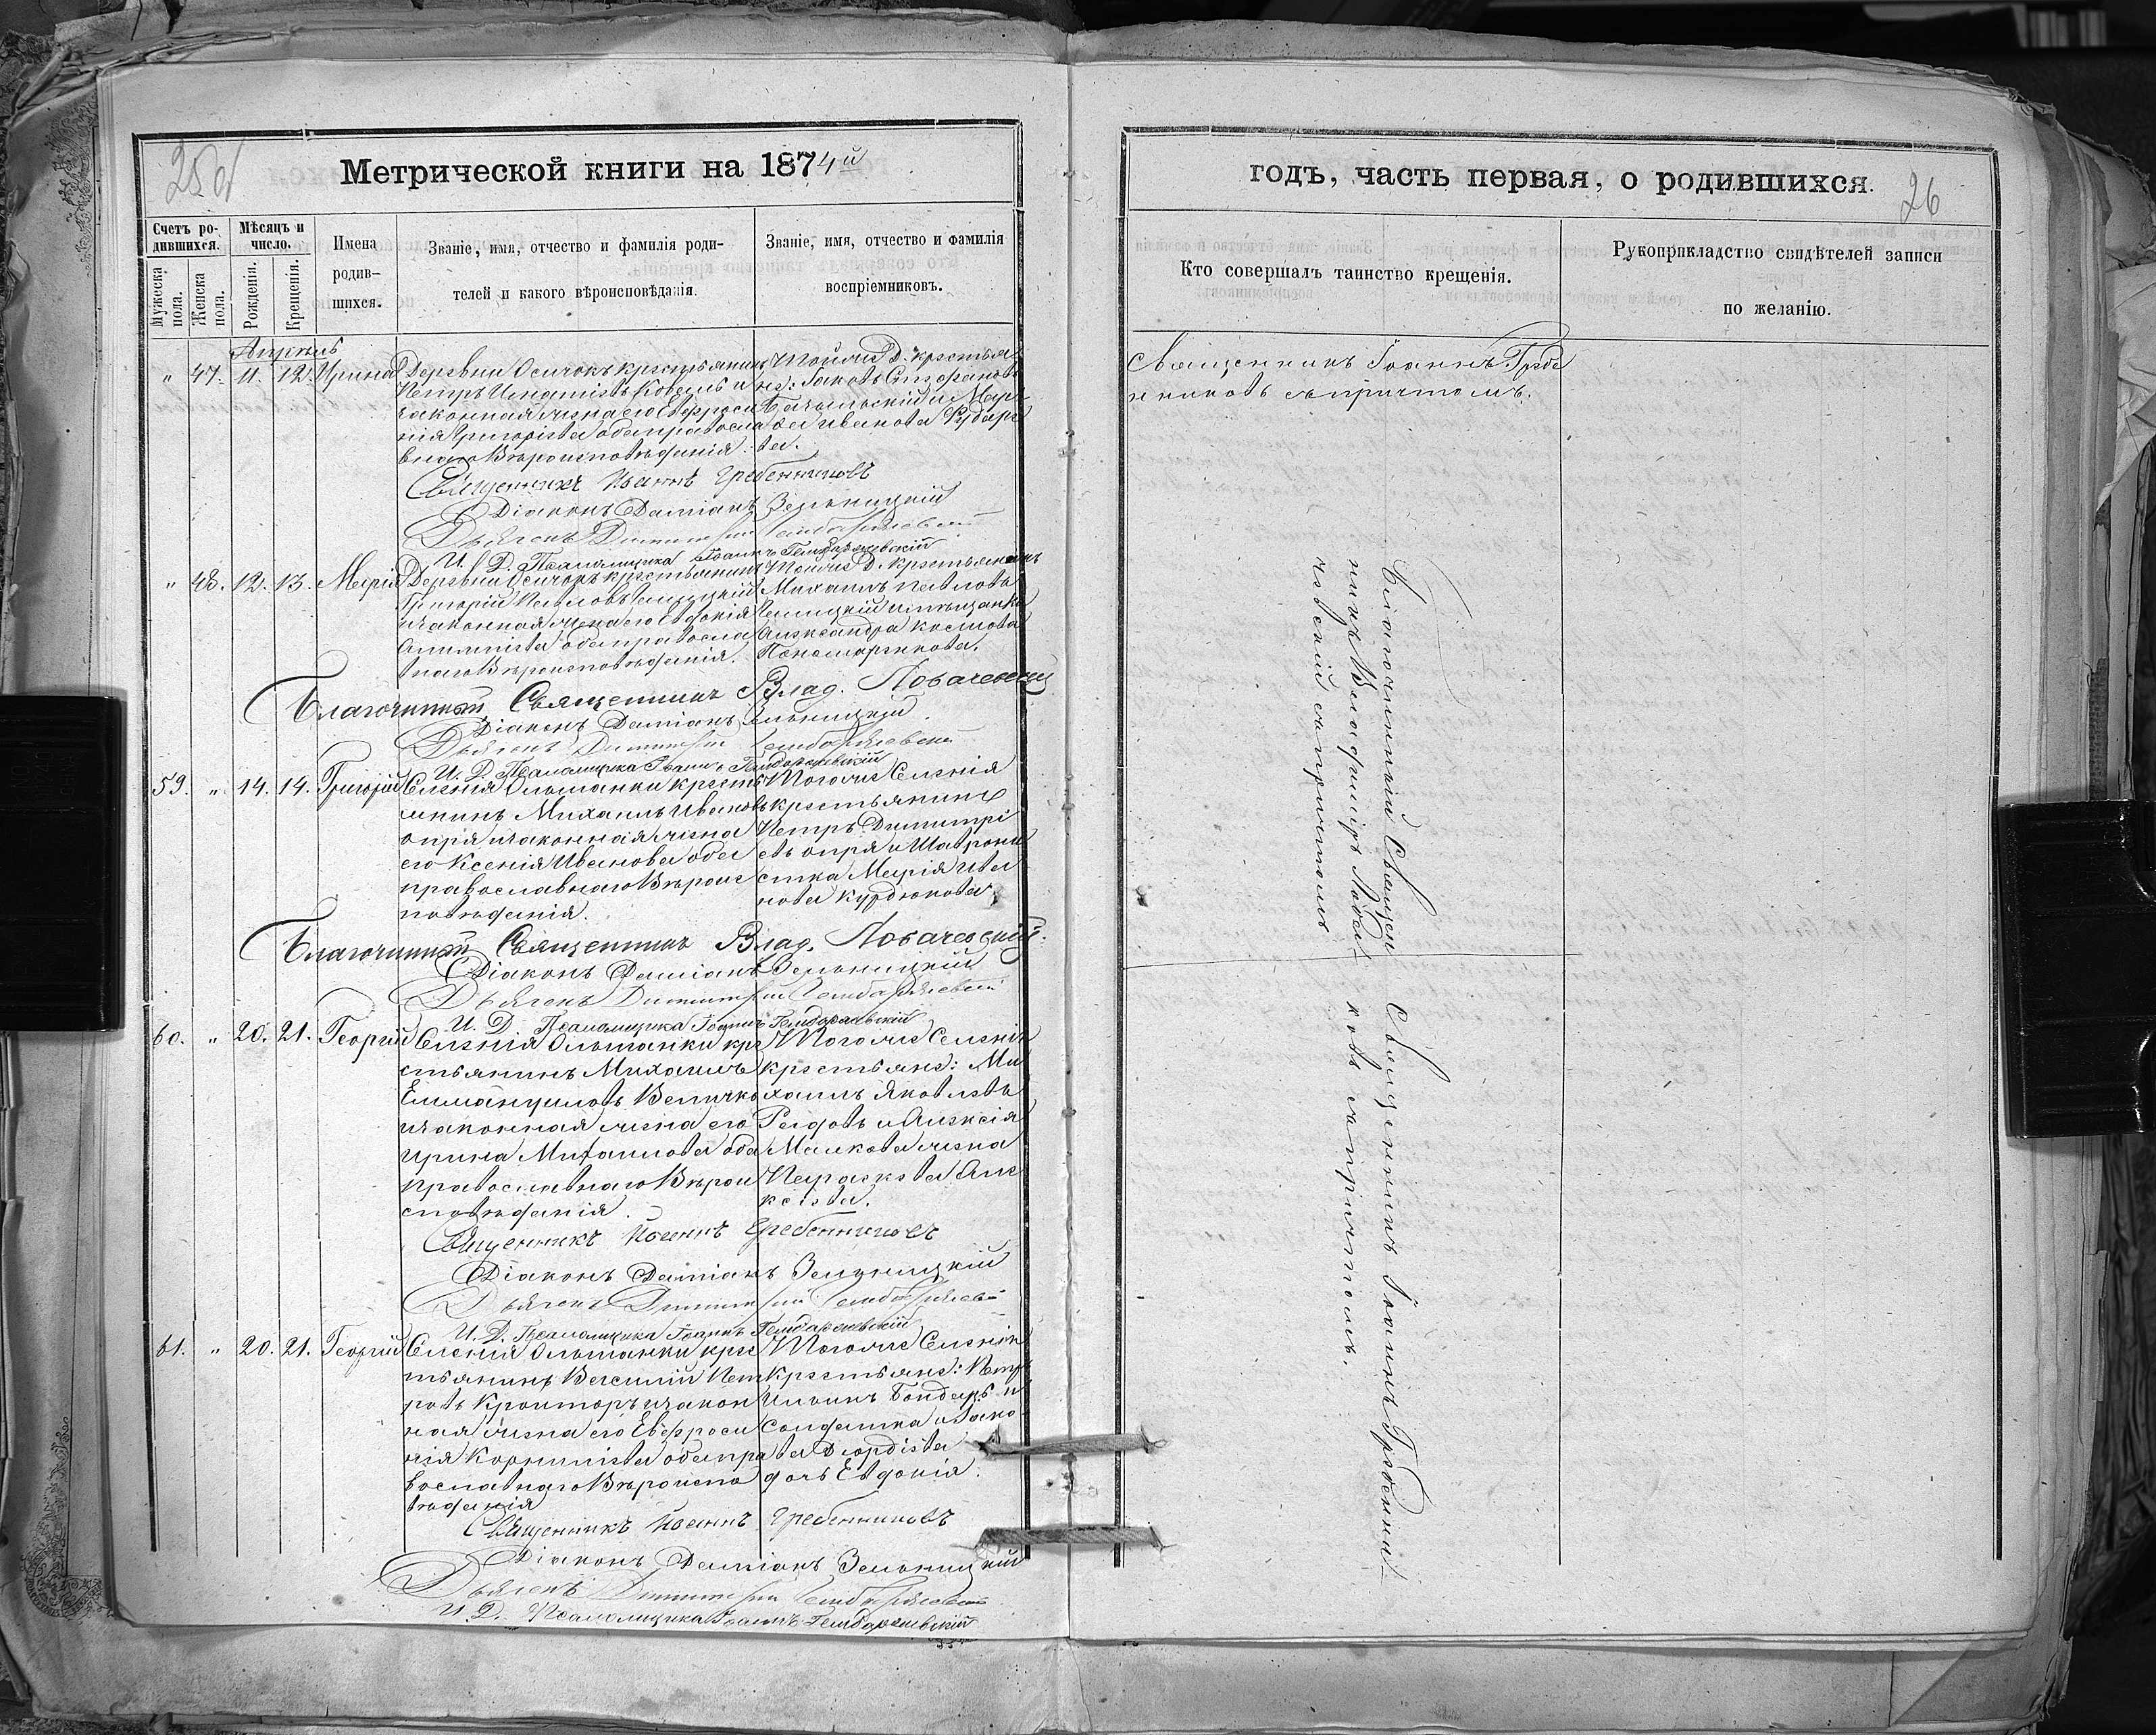 25об
Метрической книги на 1874й
Счетъ ро-
дившихся.
Мужеска
пола.
Женска
пола.
Мѣсяцъ и
число.
Рожденія.
Крещенія.
Имена
родив-
шихся.
Званіе, имя, отчество и фамилія роди-
телей и какого вѣроисповѣданія.
Званіе, имя, отчество и фамилія
воспріемниковъ.
Апрѣль
" 47. 11. 12. Ирина
Деревни Осичокъ крестьянинъ
Петръ Игнатіевъ Коваль и
законная жена его Евфроси
нія Григоріева оба правосла
внаго Вѣроисповѣданія.
Тойже Д. крестья
не: Яковъ Стефановъ
и Марѳ
Иванова
ва.
Священникъ Іоаннъ Гребенниковъ
Діаконъ Даміанъ Зельницкій
Дьячекъ Димитрій
И. Д. Псаломщика Іоаннъ
" 48. 12. 13. Марія
Деревни Осичокъ крестьянинъ
Григорій Павловъ
и законная жена его Евдокія
оба правосла
внаго Вѣроисповѣданія.
Тойже Д. крестьянинъ
Михаилъ Павловъ
и мѣщанка
Александра Космова
Пономаренкова.
Благочинный Священникъ Влад. Лобачевскій
Діаконъ Даміанъ Зельницкій
Дьячекъ Димитрій
И. Д. Псаломщика Іоаннъ
59. " 14. 14. Григорій
Селенія Ольшанки кресть
янинъ Михаилъ Ивановъ
Опря и законная жена
его Ксенія Иванова оба
православнаго Вѣроис
повѣданія.
Тогоже Селенія
крестьянинъ
Петръ Димитрі
евъ Опря и Шатрони
стка Марія Ива
нова Курдюкова.
Благочинный Священникъ Влад. Лобачевскій
Діаконъ Даміанъ Зельницкій
Дьячекъ Димитрій
И. Д. Псаломщика Іоаннъ
60. " 20. 21. Георгій
Селенія Ольшанки кре
стьянинъ Михаилъ
Еммануиловъ Величко
и законная жена его
Ирина Михаилова оба
православнаго Вѣрои
сповѣданія.
Тогоже Селенія
крестьяне: Ми
хаилъ Яковлевъ
и Алексія
Малкова жена
Параскева Але
ксіева.
Священникъ Іоаннъ Гребенниковъ
Діаконъ Даміанъ Зельницкій
Дьячекъ Димитрій
И. Д. Псаломщика Іоаннъ
61. " 20. 21. Георгій
Селенія Ольшанки крес
тьянинъ Василій Пет
ровъ Кройторъ и закон
ная жена его Евфроси
нія Корниліева оба пра
вославнаго Вѣроиспо
вѣданія
Тогоже Селенія
Крестьяне: Петръ
Ильинъ Бондарь и
Солдатка
дочь Евдокія.
Священникъ Іоаннъ Гребенниковъ
Діаконъ Даміанъ Зельницкій
Дьячекъ Димитрій
И. Д. Псаломщика Іоаннъ
годъ, часть первая, о родившихся.
26
Кто совершалъ таинство крещенія.
Рукоприкладство свидѣтелей записи
по желанію.
Священникъ Іоаннъ Гребе
нниковъ съ причтомъ.
Благочинный Священ
никъ Владиміръ Лоба-
чевскій съ причтомъ
Священникъ Іоаннъ Гребенни-
ковъ съ причтомъ.